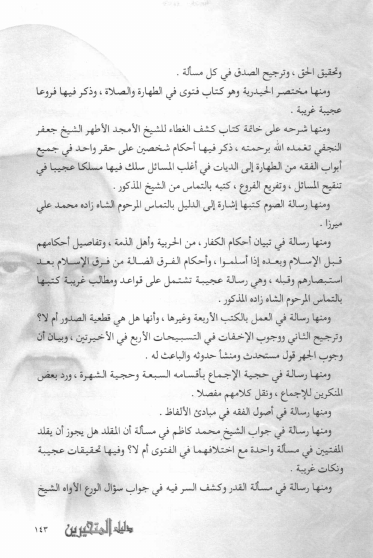 وتحقيق الحق ، وترجيح الصدق في كل مسألة .
ومنها مختصر الحيدرية وهو كتاب فتوى في الطهارة والصلاة ، وذكر فيها فروعا
عجيبة غريبة .
ومنها شرحه على خاتمة كتاب كشف الغطاء للشيخ الأمجد الأطهر الشيخ جعفر
النجفي تغمده الله برحمته ، ذكر فيها أحكام شخصين على حقر واحد في جميع
أبواب الفقه من الطهارة إلى الديات في أغلب المسائل سلك فيها مسلكا عجيبا في
تنقيح المسائل ، وتفريع الفروع ، كتبه بالتماس من الشيخ المذكور .
ومنها رسالة الصوم كتبها إشارة إلى الدليل بالتماس المرحوم الشاه زاده محمد علي
ميرزا .
ومنها رسالة في تبيان أحكام الكفار ، من الحربية وأهل الذمة ، وتفاصيل أحكامهم
قبل الإسلام وبعده إذا أسلموا ، وأحكام الفرق الضالة من فرق الإسلام بعد
استبصارهم وقبله ، وهي رسالة عجيبة تشتمل على قواعد ومطالب غريبة كتبها
بالتماس المرحوم الشاه زاده المذكور .
ومنها رسالة في العمل بالكتب الأربعة وغيرها ، وأنها هل هي قطعية الصدور أم لا؟
وترجيح الثاني ووجوب الإخفات في التسبيحات الأربع في الأخيرتين ، وبيان أن
وجوب الجهر قول مستحدث ومنشأ حدوثه والباعث له .
ومنها رسالة في حجية الإجماع بأقسامه السبعة وحجية الشهرة ، ورد بعض
المنكرين للإجماع ، ونقل كلامهم مفصلا .
ومنها رسالة في أصول الفقه في مبادئ الألفاظ .
ومنها رسالة في جواب الشيخ محمد كاظم في مسألة أن المقلد هل يجوز أن يقلد
المفتيين في مسألة واحدة مع اختلافهما في الفتوى أم لا؟ وفيها تحقيقات عجيبة
ونكات غريبة .
ومنها رسالة في مسألة القدر وكشف السر فيه في جواب سؤال الورع الأواه الشيخ
دليل المتحيرين ١٤٣